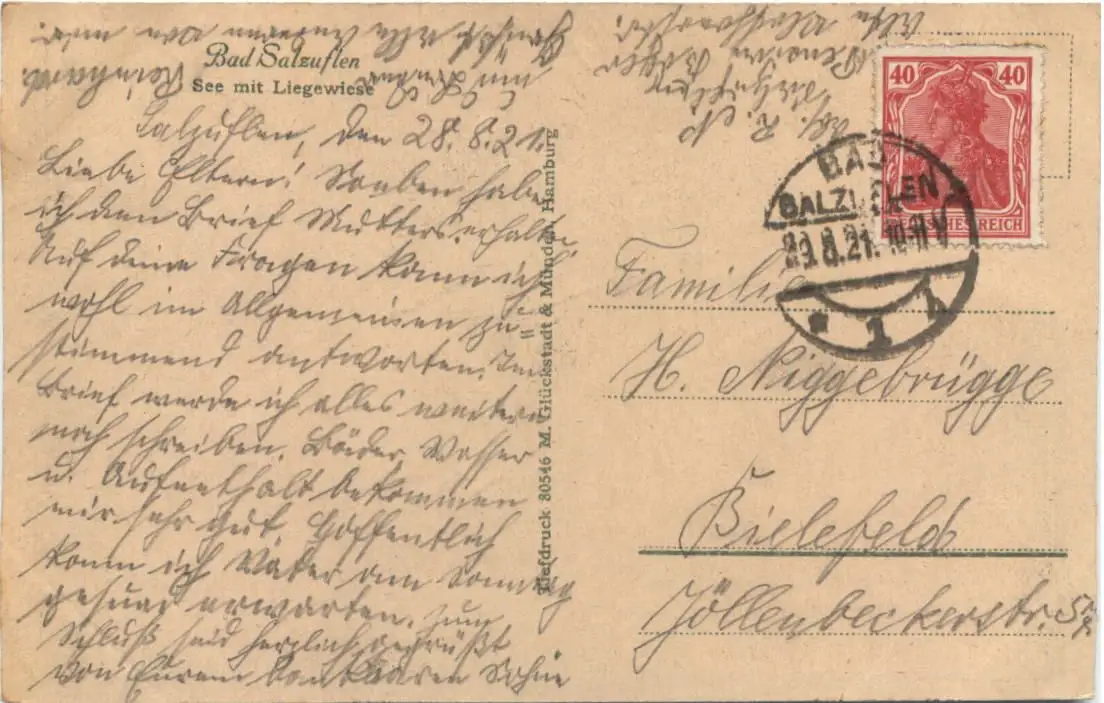 Bad Salzuflen
See mit Liegewiese
Salzuflen, den 28.8.21.
Liebe Eltern! Soeben habe
ich den Brief Mutters erhalten
Auf deine Fragen kann ich
wohl im Allgemeinen zu-
stimmend antworten. Im
Brief werde ich alles weitere
noch schreiben. Bäder Wasser
u. Aufenthalt bekommen
mir sehr gut. Hoffentlich
kann ich Vater am Sonntag
gesund erwarten. Zum
Schluß seid herzlich gegrüßt
von Eurem dankbaren Sohne
Reinhard.
Tiefdruck 80546 M. Glückstadt & Münden, Hamburg
40 40
BAD
SALZUFLEN
29.8.21. 10-11 V
* 1
Familie
H. Niggebrügge
Bielefeld
Jöllenbeckerstr.